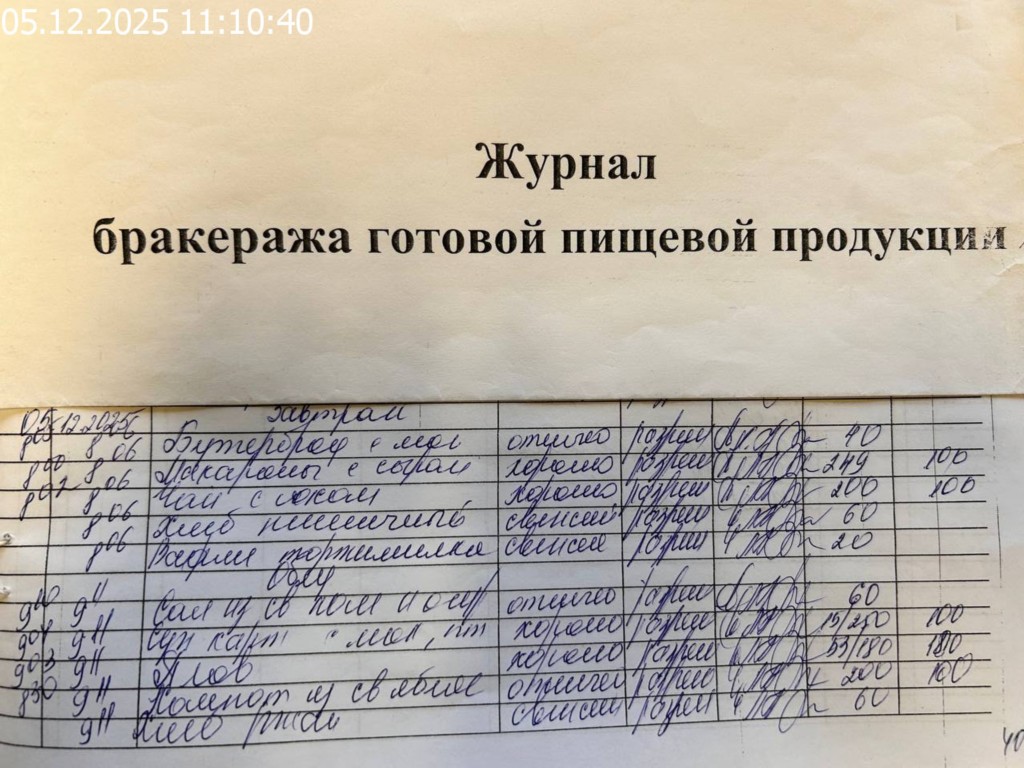 05.12.2025 11:10:40
Журнал
бракеража готовой пищевой продукции
05.12.2025 завтрак
8 06 Бутерброд с мас отлично разреш 40
8 00 8 06 Макароны с сыром хорошо разреш 249 100
8 02 8 06 Чай с соком хорошо разреш 200 100
8 06 Хлеб пшеничный свежий разреш 60
8 06 Вафли свежие разреш 20
9 10 9 11 Сал из св пом и огур отлично разреш 60
9 01 9 11 Суп карт с мак, пт хорошо разреш 15/250 100
9 03 9 11 Плов хорошо разреш 53/180 100
8 50 9 11 Компот из св яблок отлично разреш 200 100
9 11 Хлеб ржан свежий разреш 60
40